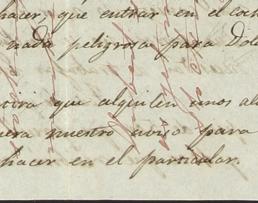 hacer, que entrar en el coch
nada peligrosa para Dolo
que alquilen unos al
nuestro aviso para
hacer en el particular.